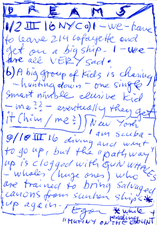 DREAMS
1/2 III 16 NYC 91 - we - have
to leave 214 Lafayette and
get on a big ship - I - we -
are all VERY sad.
6) A big group of kids is chasing
- hunting down - one single
smart nimble elusive kid
- me?? - eventually they get
it (him/me?)
New York
9/10 III 16 I am scuba -
diving and want
to go up, but the "pathway"
up is clogged with GUN WHALES
- whales (huge ones) who
are trained to bring salvaged
canons from sunken ships
up again.
*while
reading
"MUTINY ON THE BOUNTY"